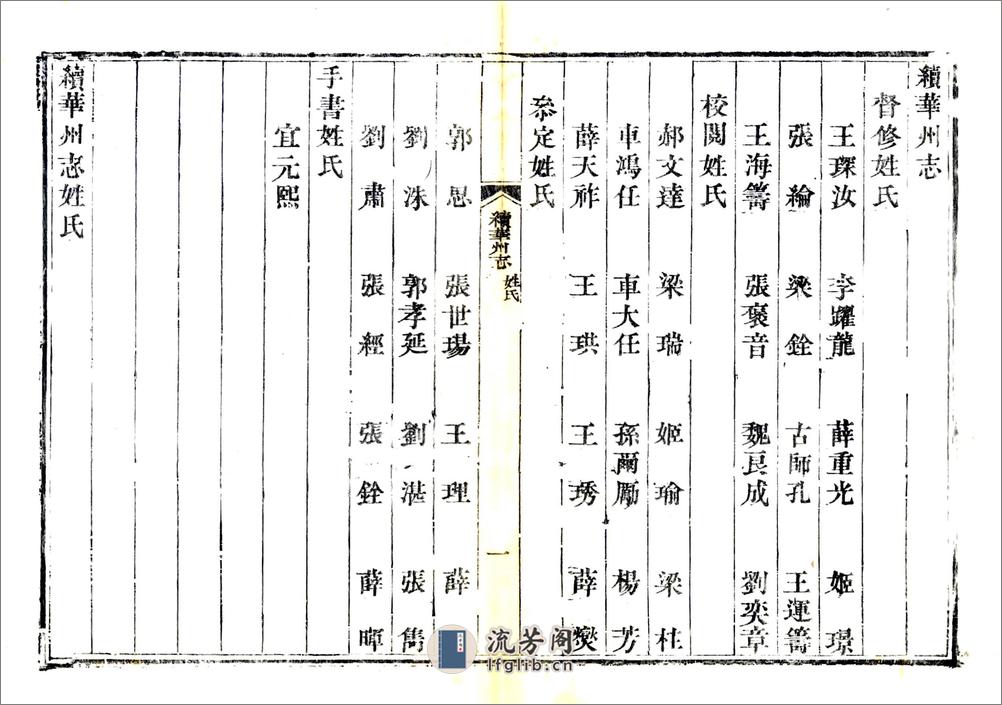 續華州志
督修姓氏
王琛汝 李躍龍 薛重光 姬璟
張繪 梁銓 古師孔 王運籌
王海籌 張褒音 魏良成 劉奕章
校閱姓氏
郝文達 梁瑞 姬瑜 梁柱
車鴻任 車大任 孫爾勵 楊芳
薛天祚 王珙 王琇 薛爕
叅定姓氏
續華州志 姓氏 一
郭思 張世瑒 王理 薛
劉洙 郭孝延 劉湛 張雋
劉肅 張經 張銓 薛暉
手書姓氏
宜元熙
續華州志姓氏
流芳阁
lfglib.cn